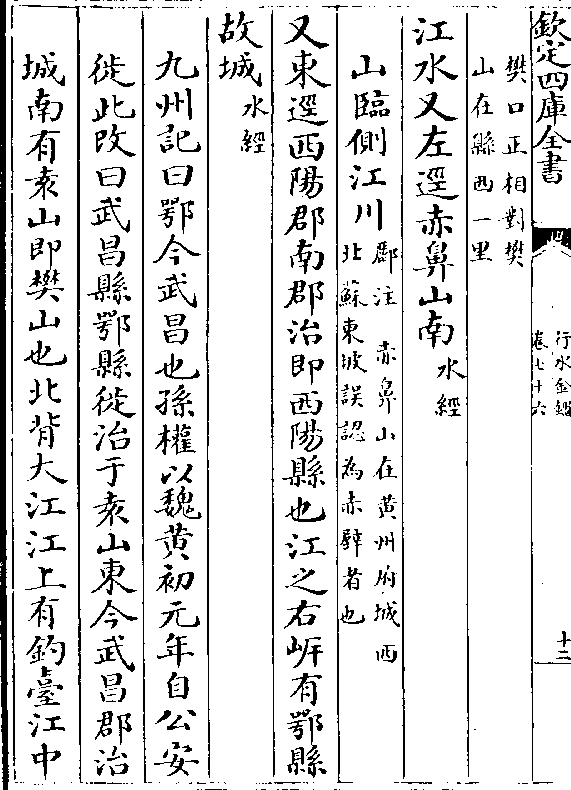 欽定四庫全書
行水金鑑
卷七十六
十二
樊口正相對樊
山在縣西一里
江水又左逕赤鼻山南水經
山臨側江川酈注 赤鼻山在黄州府城西
北蘇東坡誤認為赤壁者也
又東逕西陽郡南郡治即西陽縣也江之右岍有鄂縣
故城水經
九州記曰鄂今武昌也孫權以魏黄初元年自公安
徙此改曰武昌縣鄂縣徙治于袁山東今武昌郡治
城南有袁山即樊山也北背大江江上有釣臺江中